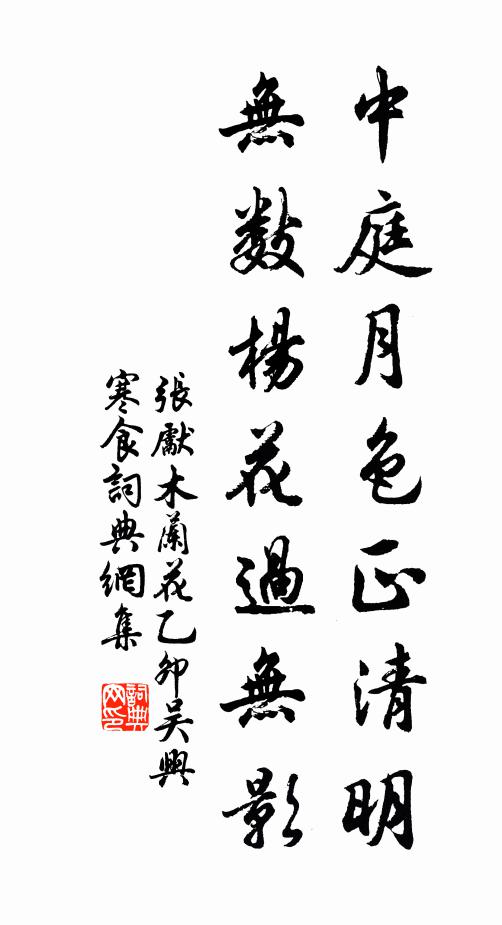 中庭月色正清明
無數楊花過無影
張獻木蘭花乙卯吴興
寒食詞典網集
詞典
网印